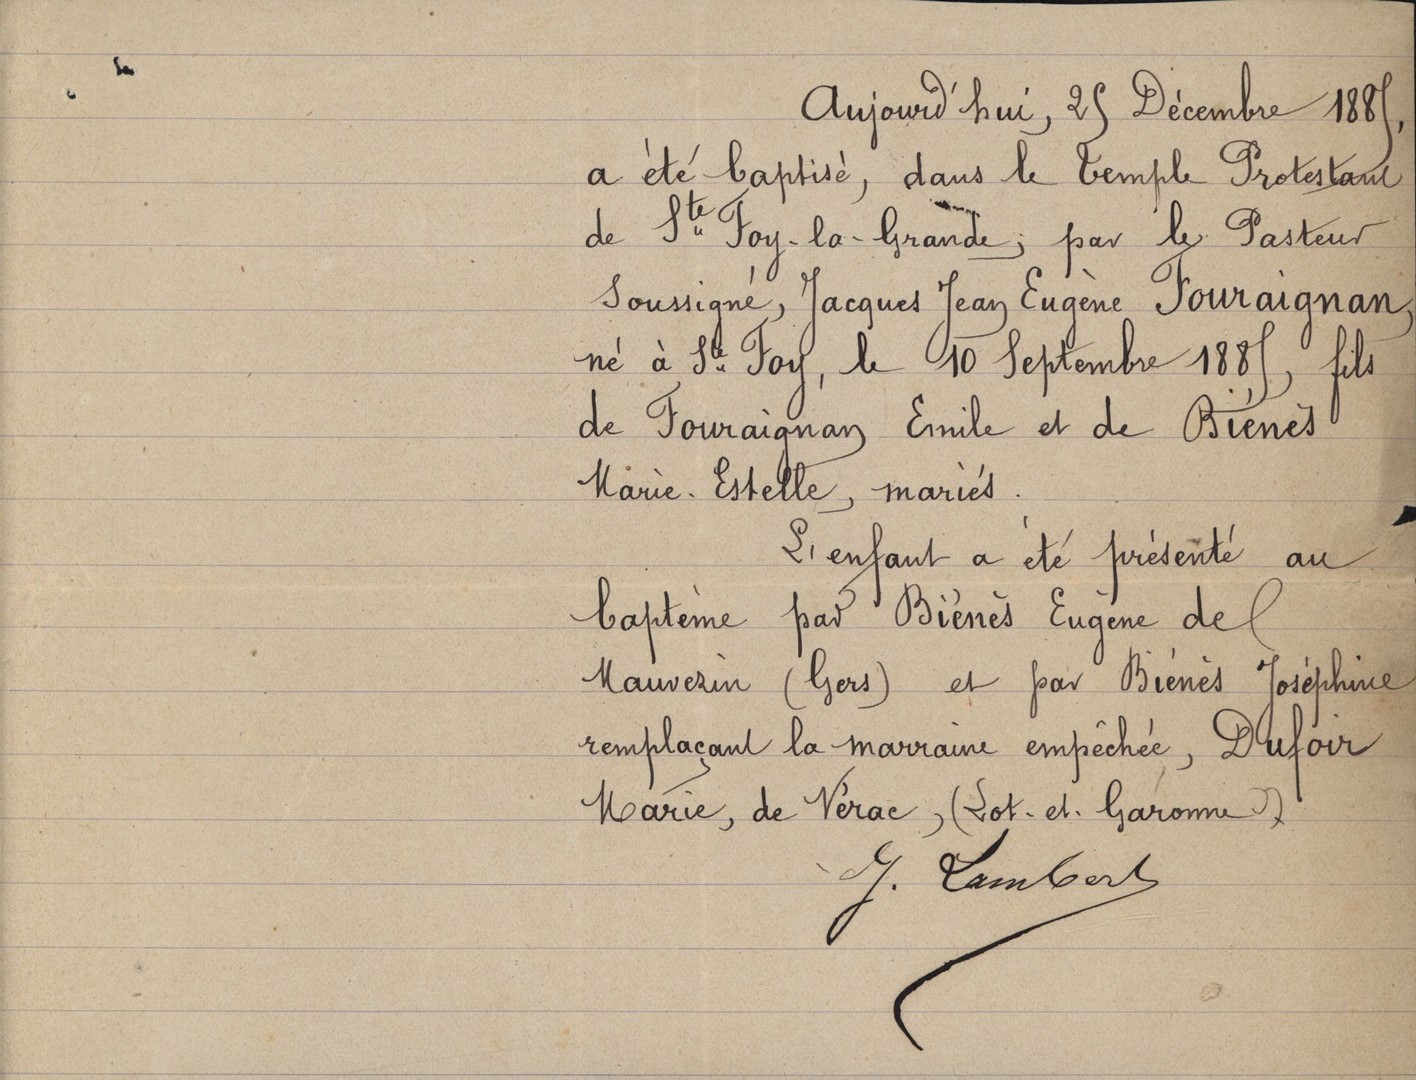 Aujourd'hui, 25 Décembre 1885,
a été baptisé, dans le Temple Protestant
de Ste Foy-la-Grande, par le Pasteur
soussigné, Jacques Jean Eugène Fouraignan,
né à Ste Foy, le 10 Septembre 1885, fils
de Fouraignan Emile et de Biénès
Marie-Estelle, mariés.
L'enfant a été présenté au
baptême par Biénès Eugène de
Mauvezin (Gers) et par Biénès Joséphine
remplaçant la marraine empêchée, Dufoir
Marie, de Nérac, (Lot-et-Garonne)
J. Lambert